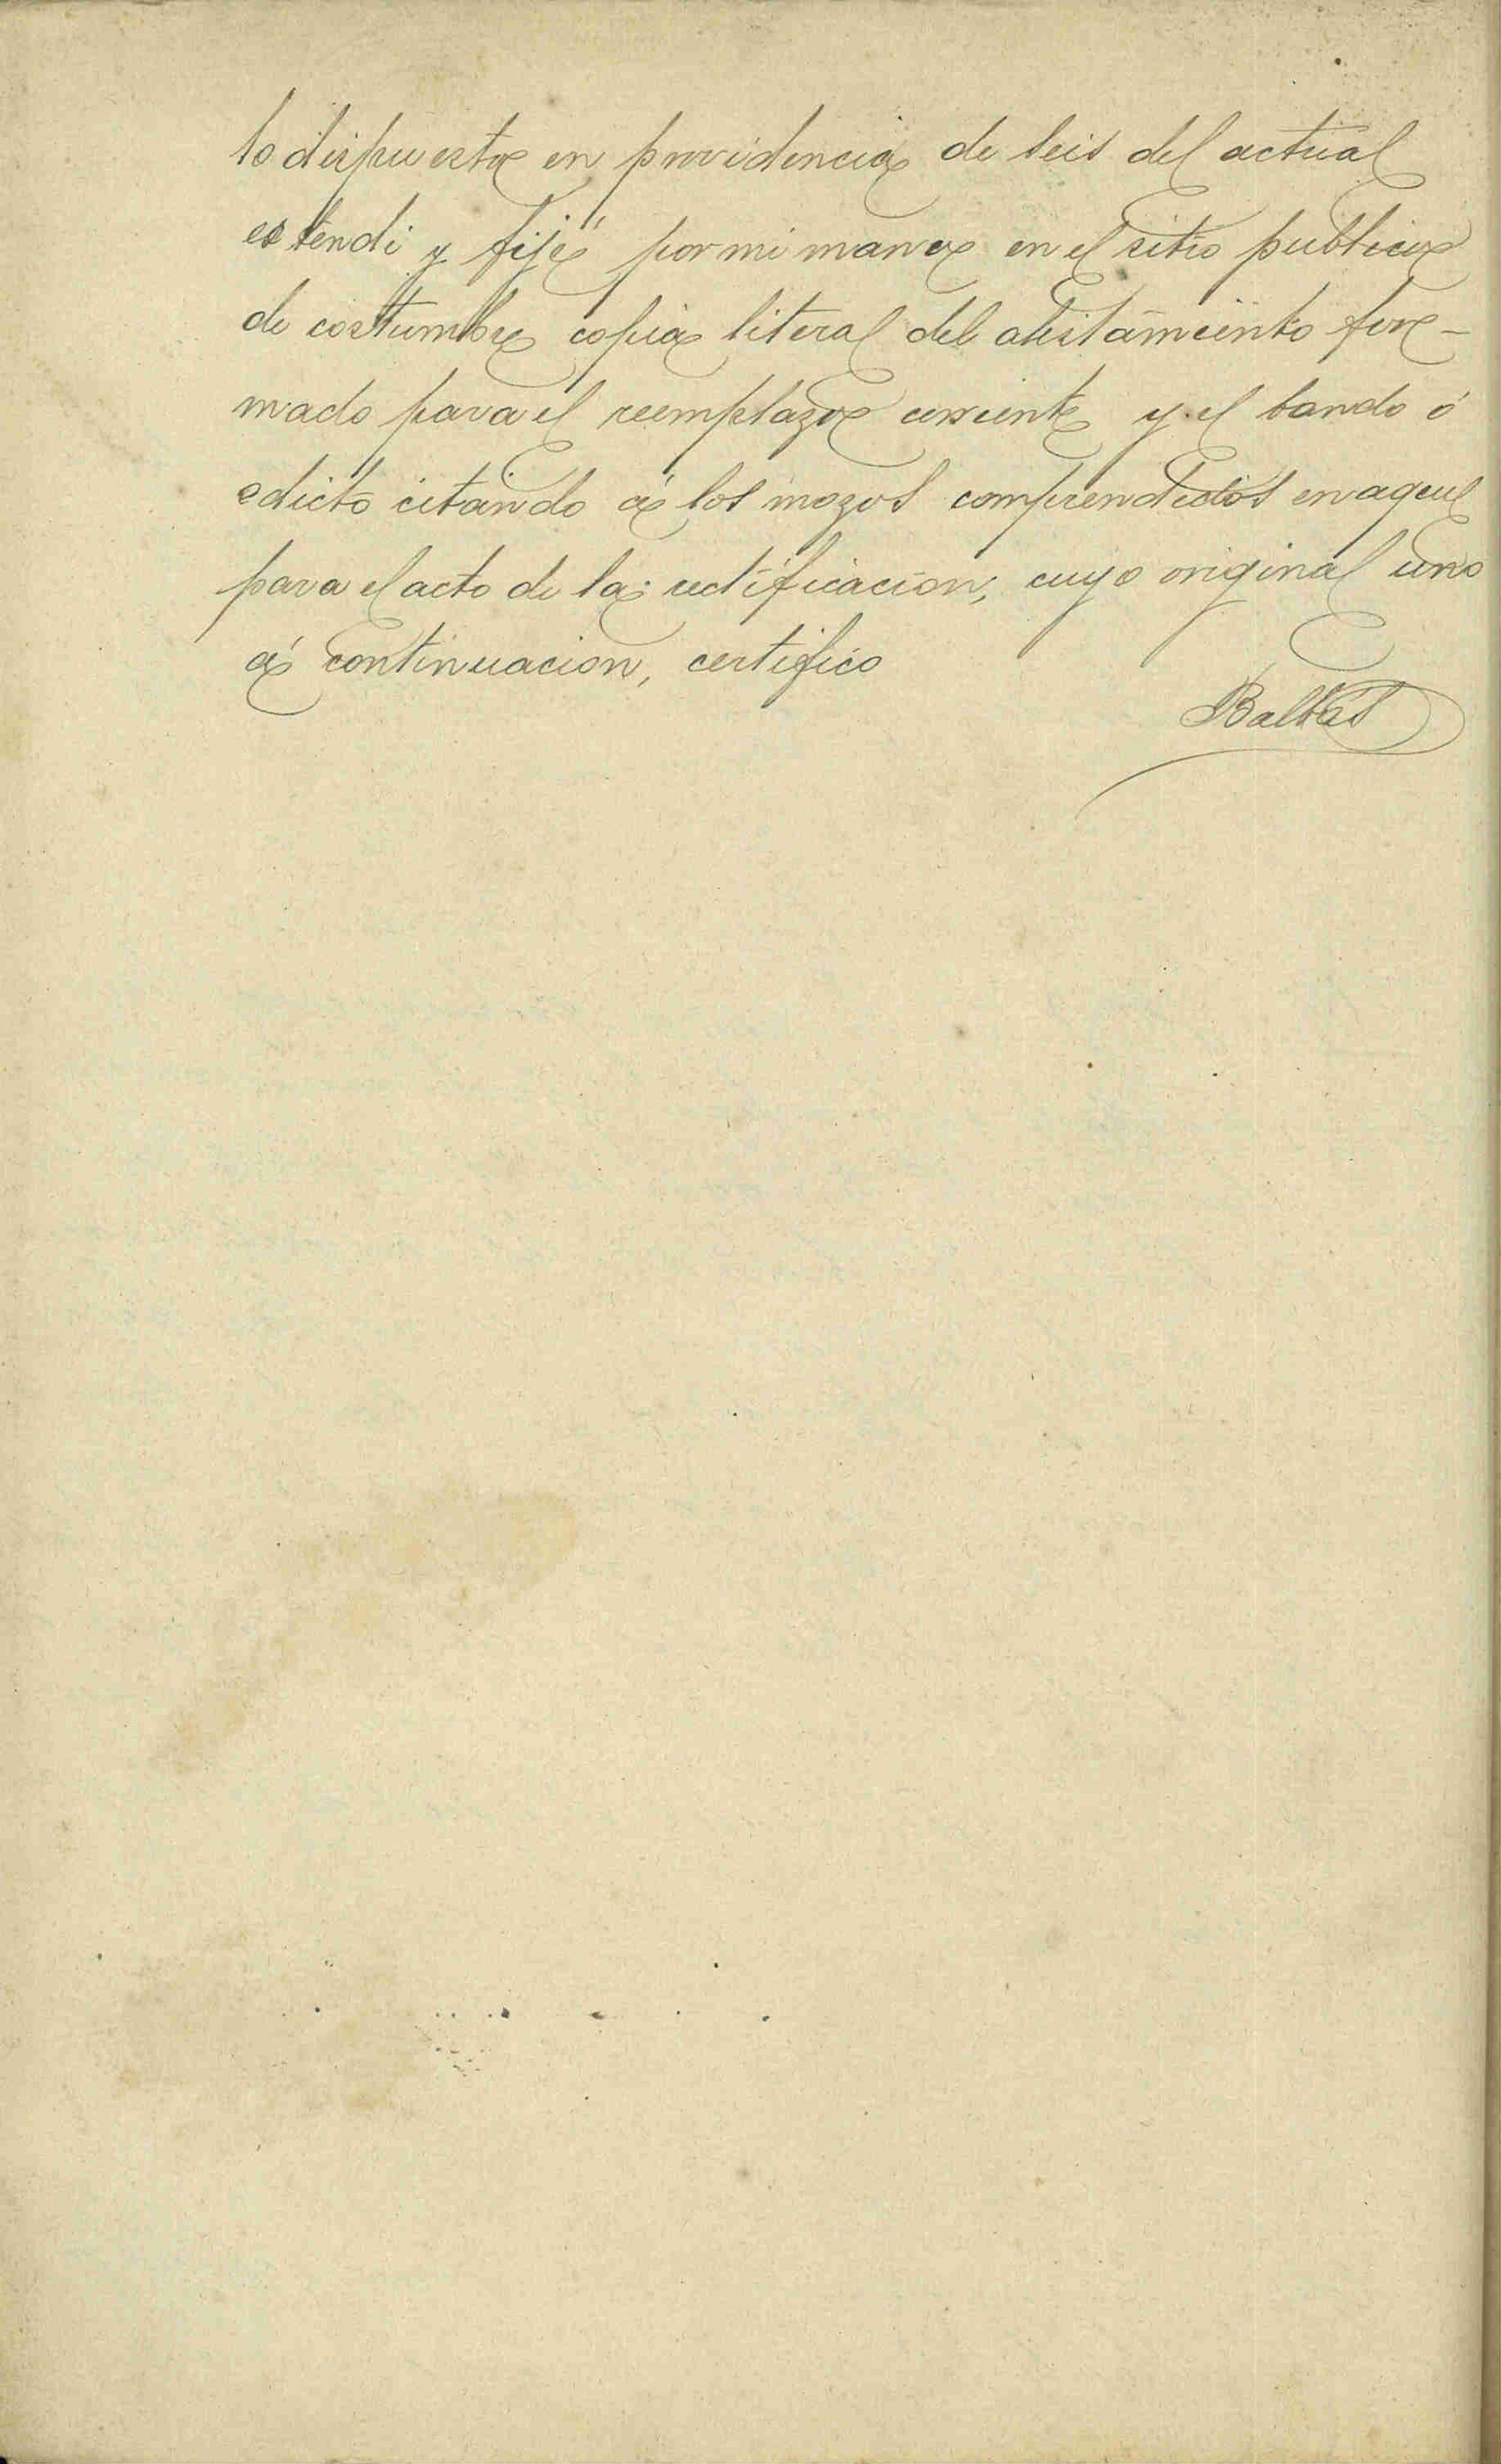 lo dispuesto en providencia de seis del actual
estendi y fijé por mi mano en el sitio publico
de costumbre copia literal del alistamiento for-
mado para el reemplazo corriente y el bando ó
edicto citando á los mozos comprendidos en aquel
para el acto de la rectificacion, cuyo original uno
á continuacion, certifico